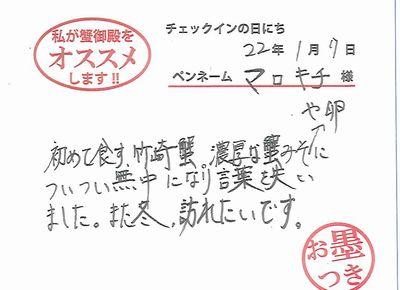 私が蟹御殿を
オススメ
します!!
チェックインの日にち
22年1月7日
ペンネーム マロキチ 様
や卵
初めて食す、竹崎蟹。濃厚な蟹みそに
ついつい無中になり言葉を失い
ました。また冬、訪れたいです。
お墨
つき